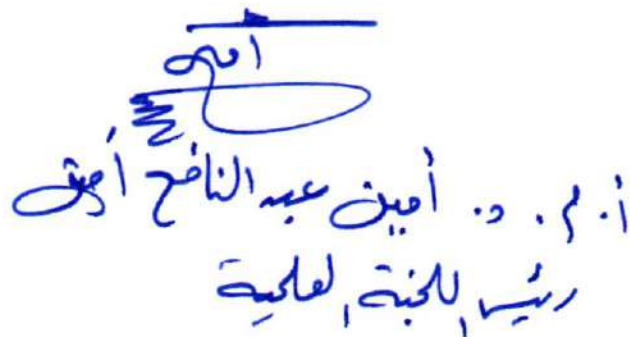 امين
أ. م. د. أمين عبد النافع أمين
رئيس اللجنة العلمية